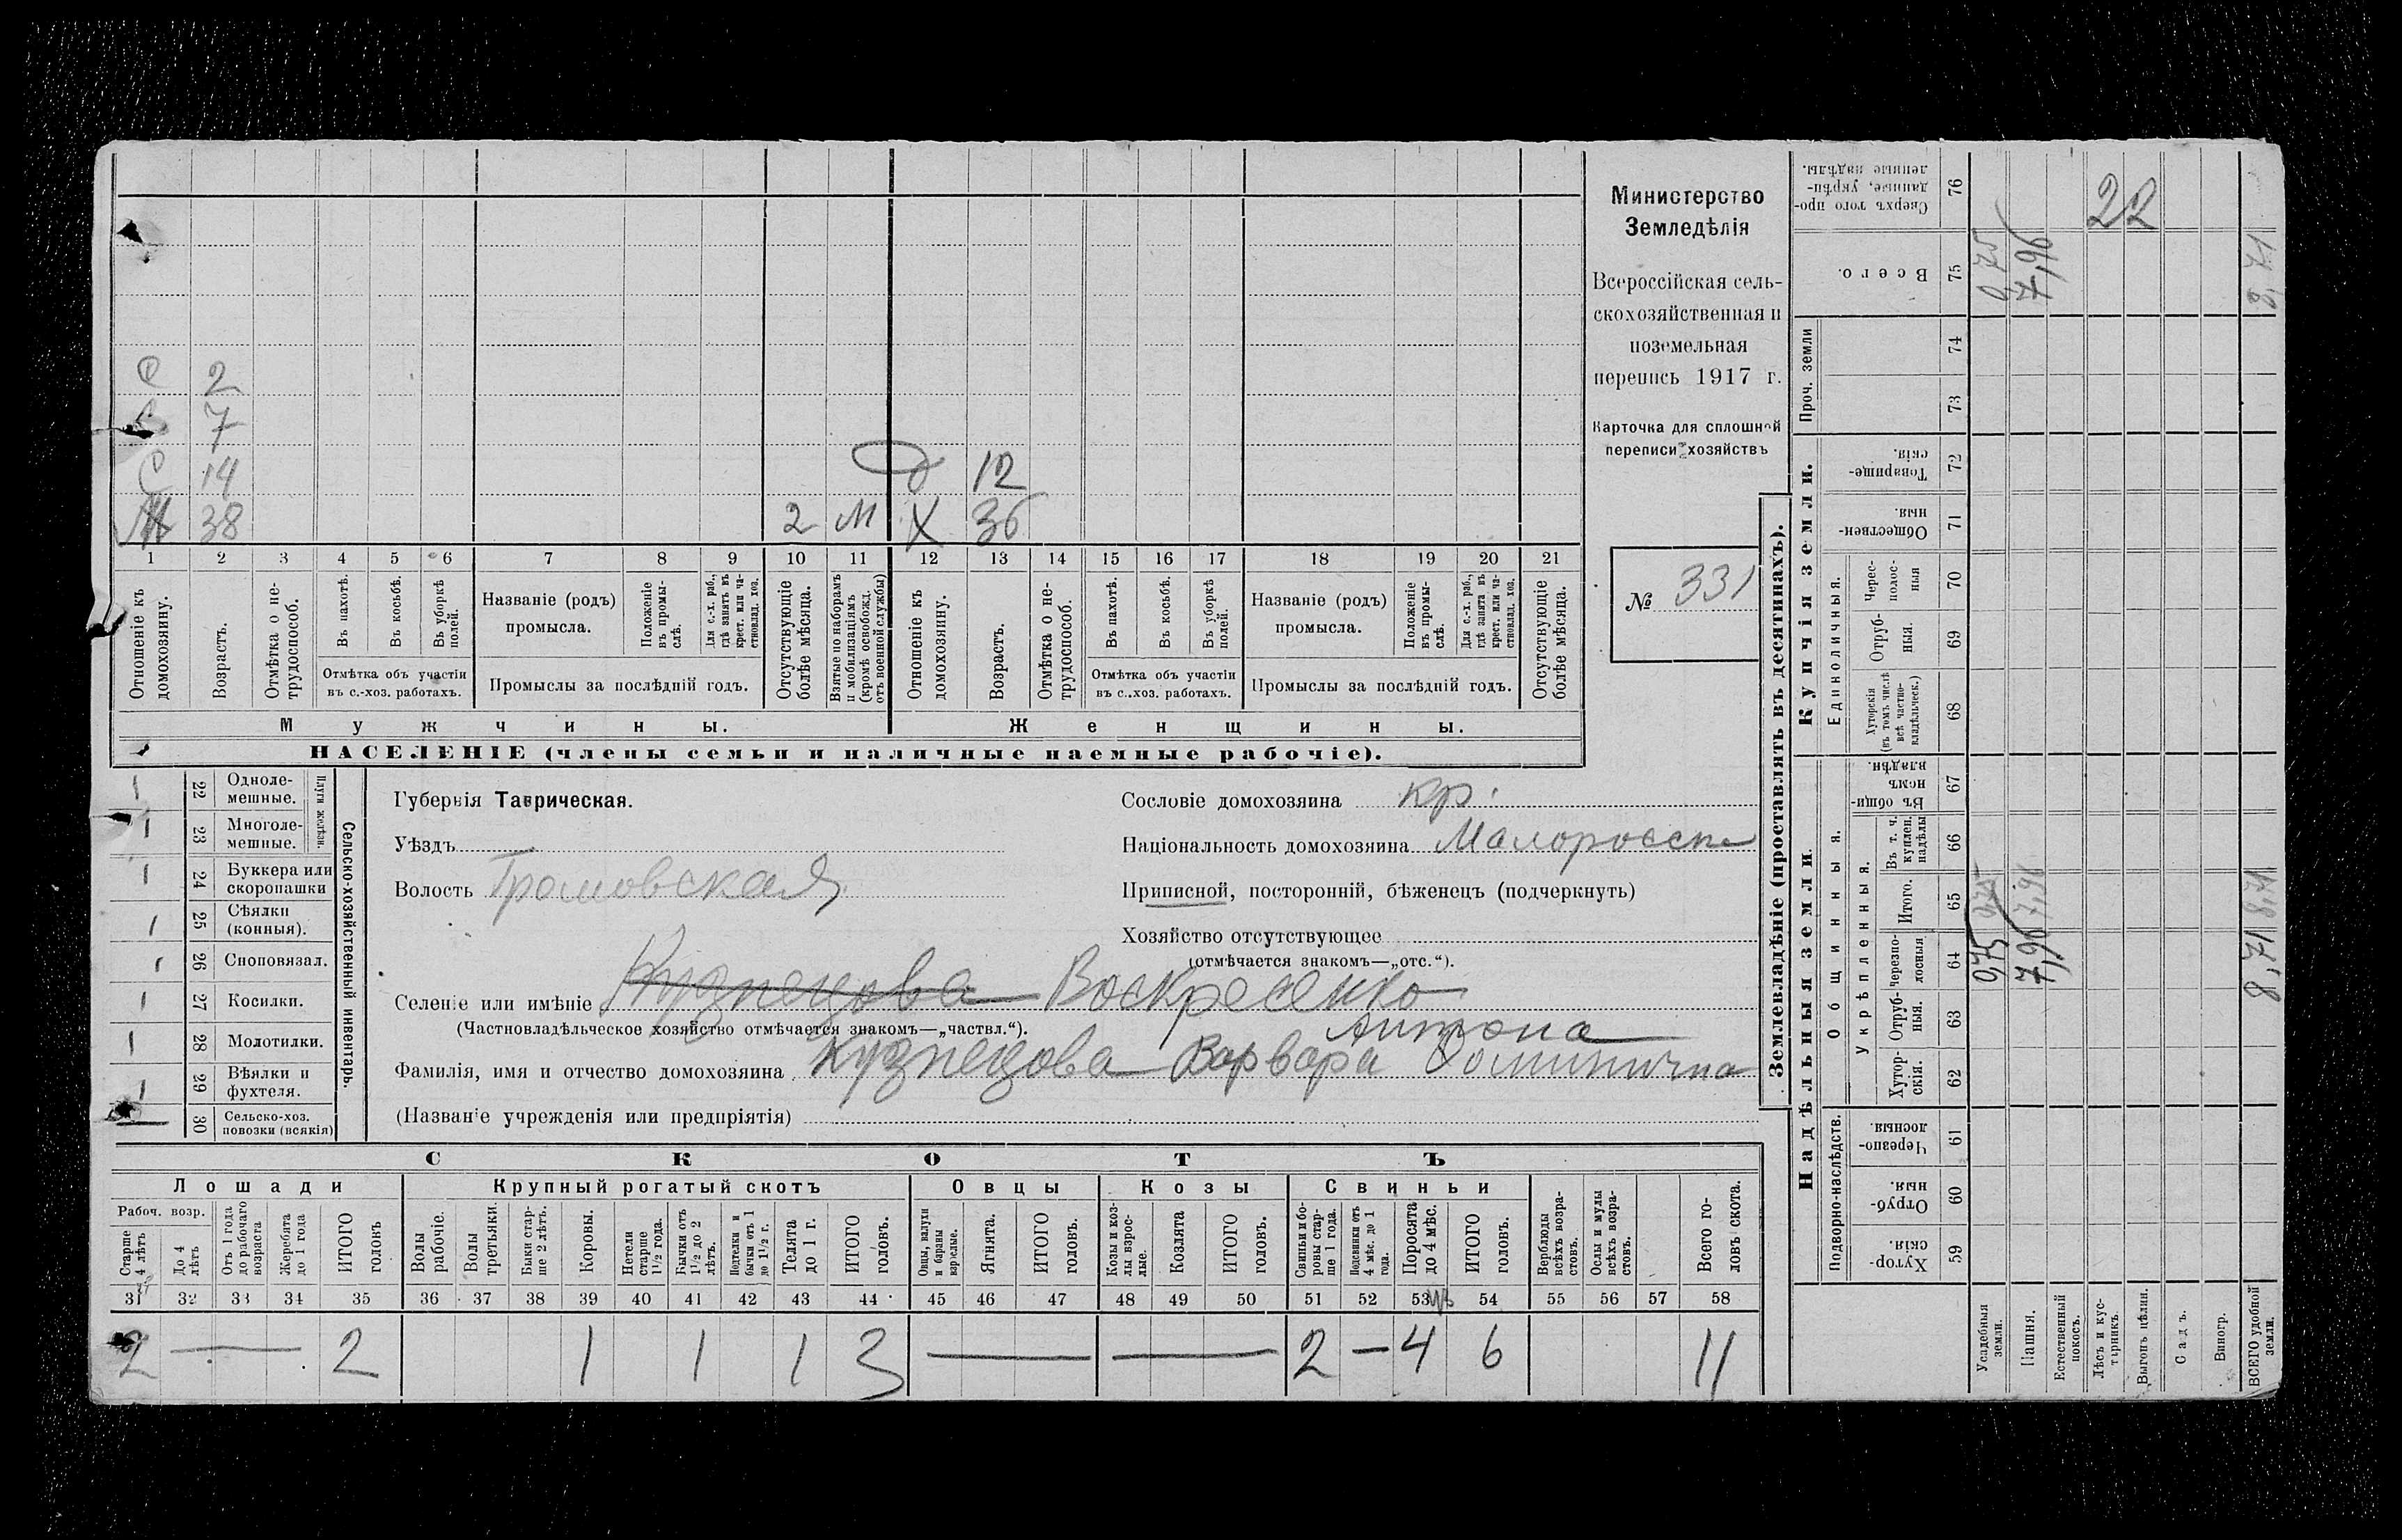 С 2
7
С 14
д 12
38 2 М Х 36
1 2 3 4 5 6 7 8 9 10 11 12 13 14 15 16 17 18 19 20 21
Отношеніе къ домохозяину.
Возрастъ.
Отмѣтка о не-трудоспособ.
Въ пахотѣ.
Въ косьбѣ.
Въ уборкѣ полей.
Отмѣтка объ участіи
въ с.-хоз. работахъ.
Названіе (родъ)
промысла.
Положеніе въ промы-слѣ.
Для с.-х. раб., гдѣ занятъ въ крест. или ча-стновлад. хоз.
Промыслы за послѣдній годъ.
Отсутствующіе болѣе мѣсяца.
Взятые по наборамъ и мобилизаціямъ (кромѣ освобожд. отъ военной службы)
Отношеніе къ домохозяину.
Возрастъ.
Отмѣтка о не-трудоспособ.
Въ пахотѣ.
Въ косьбѣ.
Въ уборкѣ полей.
Отмѣтка объ участіи
въ с.-хоз. работахъ.
Названіе (родъ)
промысла.
Положеніе въ промы-слѣ.
Для с.-х. раб., гдѣ занята въ крест. или ча-стновлад. хоз.
Промыслы за послѣдній годъ.
Отсутствующіе болѣе мѣсяца.
Мужчины. Женщины.
НАСЕЛЕНІЕ (члены семьи и наличные наемные рабочіе).
Министерство
Земледѣлія
Всероссійская сель-
скохозяйственная и
поземельная
перепись 1917 г.
Карточка для сплошной
переписи хозяйствъ
№ 331
Плуги желѣзн.
22 Одноле-мешные.
23 Многоле-мешные.
24 Буккера или скоропашки
25 Сѣялки (конныя).
26 Сноповязал.
27 Косилки.
28 Молотилки.
29 Вѣялки и фухтеля.
30 Сельско-хоз. повозки (всякія)
Сельско-хозяйственный инвентарь.
Губернія Таврическая.
Уѣздъ
Волость Громовская
Сословіе домохозяина кр.
Національность домохозяина Малоросс
Приписной, посторонній, бѣженецъ (подчеркнуть)
Хозяйство отсутствующее
(отмѣчается знакомъ—„отс.“).
Селеніе или имѣніе Кузнецова Воскресенко
(Частновладѣльческое хозяйство отмѣчается знакомъ—„частвл.“).
Антона
Фамилія, имя и отчество домохозяина Кузнецова Варвара
(Названіе учрежденія или предпріятія)
СКОТЪ
Лошади Крупный рогатый скотъ Овцы Козы Свиньи
Рабоч. возр.
Старше 4 лѣтъ
До 4 лѣтъ
Отъ 1 года до рабочаго возраста
Жеребята до 1 года
ИТОГО головъ
Волы рабочіе.
Волы третьяки.
Быки стар-ше 2 лѣтъ.
Коровы.
Нетели старше 1½ года.
Бычки отъ 1½ до 2 лѣтъ.
бычки отъ 1 до 1½ г.
Телята до 1 г.
ИТОГО головъ.
Овцы, валухи и бараны взрослые.
Ягнята.
ИТОГО головъ.
Козы и коз-лы взрос-лые.
Козлята
ИТОГО головъ.
Свиньи и бо-ровы стар-ше 1 года.
Подсвинки отъ 4 мѣс. до 1 года.
Поросята до 4 мѣс.
ИТОГО головъ.
Верблюды всѣхъ возра-стовъ.
Ослы и мулы всѣхъ возра-стовъ.
Всего го-ловъ скота.
31 32 33 34 35 36 37 38 39 40 41 42 43 44 45 46 47 48 49 50 51 52 53 54 55 56 57 58
2 — 2 1 1 1 3 — — 2 — 4 6 11
Землевладѣніе (проставлять въ десятинахъ).
Надѣльныя земли
Купчія земли.
Проч. земли
Подворно-наслѣдств.
Общинныя.
Укрѣпленныя.
Единоличныя.
Хутор-скія. 59
Отруб-ныя. 60
Черезпо-лосныя. 61
Хутор-скія. 62
Отруб-ныя. 63
черезпо-лосныя 64
Итого. 65
Въ т. ч. куплен. надѣлы 66
Въ общин-номъ владѣн. 67
Хуторскія (въ томъ числѣ всѣ частно-владѣльческ.) 68
Отруб-ныя. 69
Черес-полос-ныя 70
Обществен-ныя. 71
Товарище-скія. 72
73
74
Всего. 75
Сверхъ того про-данные, укрѣп-ленные надѣлы. 76
Усадебныя земли. 0,75 0,75 0,75
Пашня. 7,96 7,96 7,96
Естественный покосъ.
Лѣсъ и кус-тарникъ. 22
Выгонъ цѣлин.
Садъ.
Виногр.
ВСЕГО удобной земли. 8,71 8,71 8,71